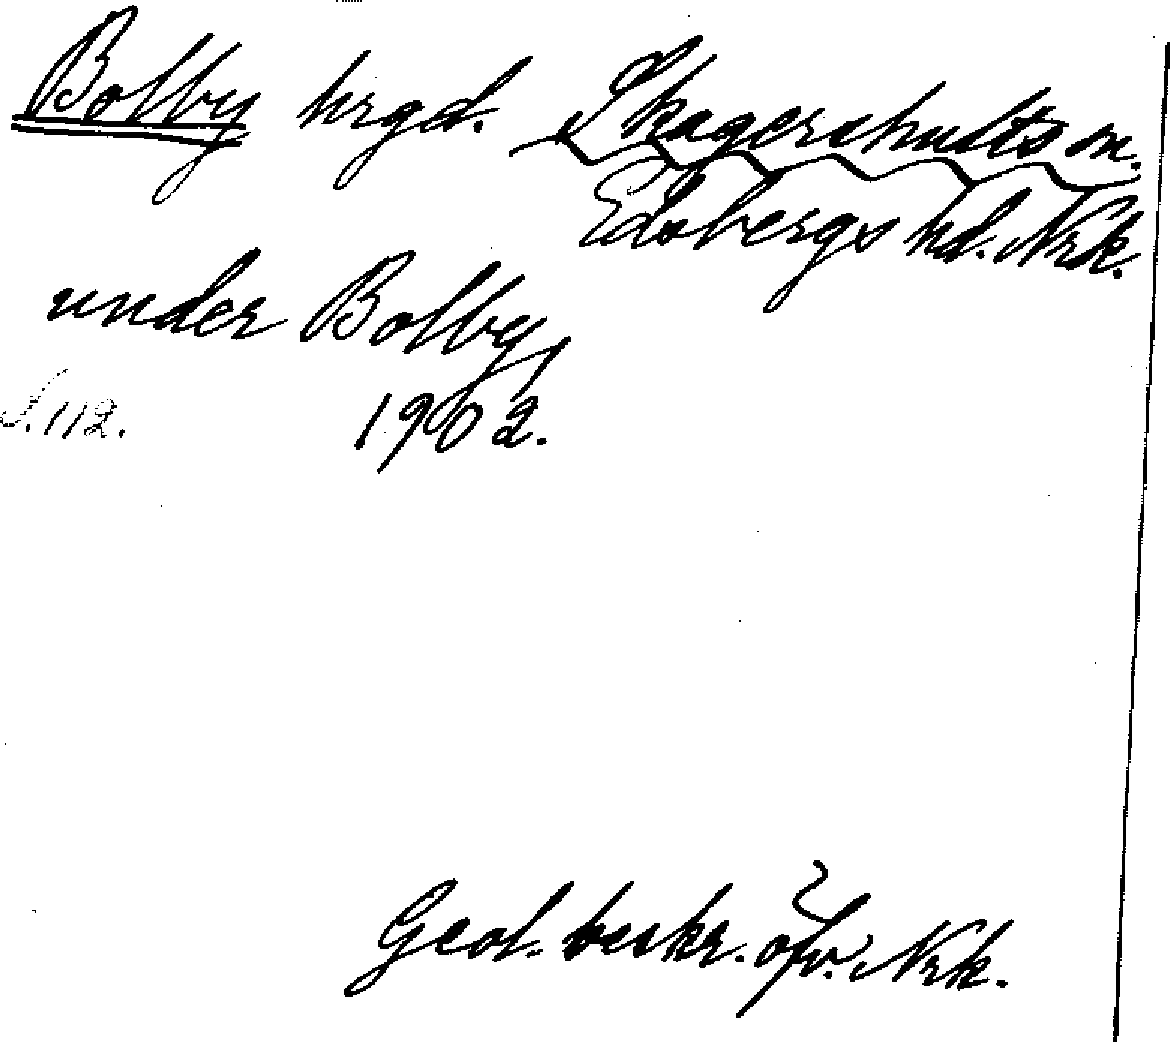 Bolby hrgd. Skagershults sn.
Edsbergs hd. Nrk.
under Bolby,
S. 112. 1902.
Geol. beskr. öfv. Nrk.